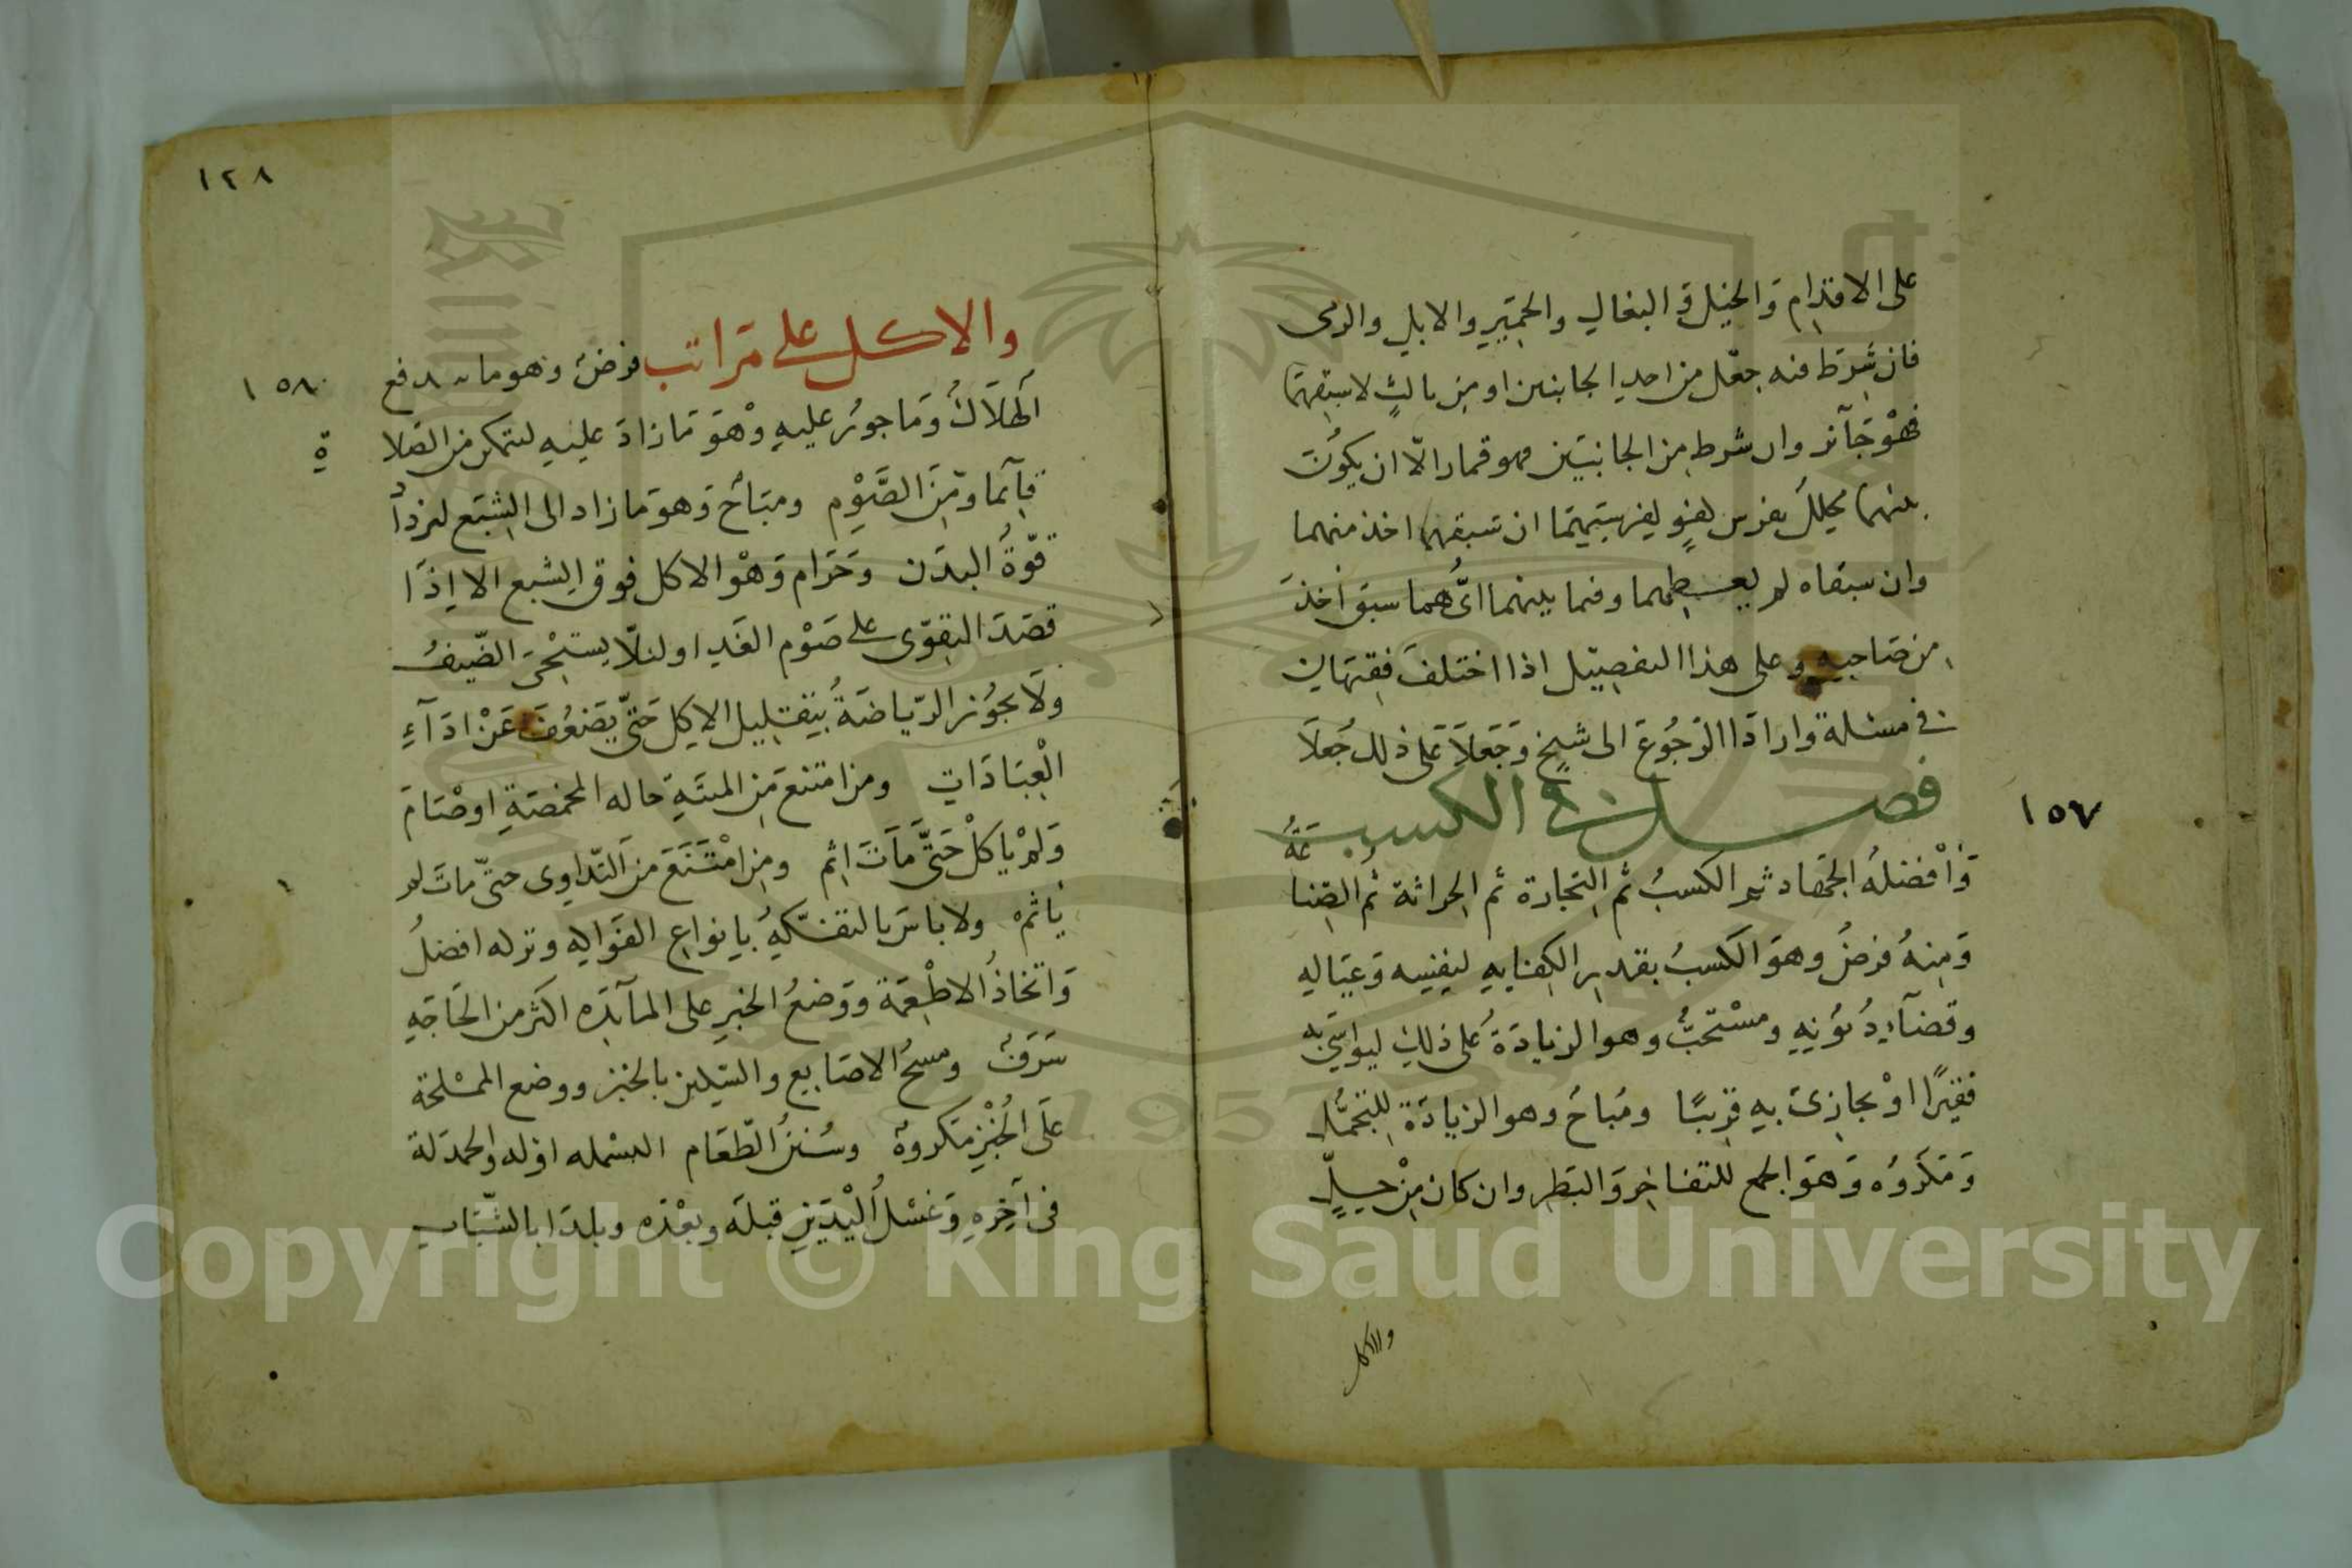 على الاقدام والخيل والبغال والحمير والابل والرمى
فان شرط فيه جعل من احد الجانبين او من ثالث لاسبقهما
فهو جآئز وان شرط من الجانبين فهو قمار الا ان يكون
بينهما محلل بفرس كفو لفرسيهما ان سبقهما اخذ منهما
وان سبقاه لم يعطهما وفيما بينهما ايهما سبق اخذ
من صاحبه وعلى هذا التفصيل اذا اختلف فقيهان
فى مسئلة وارادا الرجوع الى شيخ وجعلا على ذلك جعلا
١٥٧
فصل فى الكسب
وافضله الجهاد ثم الكسب ثم التجارة ثم الحراثة ثم الصناعة
ومنه فرض وهو الكسب بقدر الكفاية لنفسه وعياله
وقضآء ديونه ومستحب وهو الزيادة على ذلك ليواسى به
فقيرا او يجازى به قريبا ومباح وهو الزيادة للتجمل
ومكروه وهو الجمع للتفاخر والبطر وان كان من حل
والاكل
١٢٨
١٥٨
والاكل على مراتب فرض وهو ما يدفع
الهلاك وماجور عليه وهو ما زاد عليه ليتمكن من الصلاة
قآئما ومن الصوم ومباح وهو ما زاد الى الشبع لتزداد
قوة البدن وحرام وهو الاكل فوق الشبع الا اذا
قصد التقوى على صوم الغد او لئلا يستحى الضيف
ولا يجوز الرياضة بتقليل الاكل حتى يضعف عن ادآء
العبادات ومن امتنع من الميتة حاله المخمصة او صام
ولم ياكل حتى مات اثم ومن امتنع من التداوى حتى مات لم
ياثم ولا باس بالتفكه بانواع الفواكه وتركه افضل
واتخاذ الاطعمة ووضع الخبز على المآئده اكثر من الحاجه
سرف ومسح الاصابع والسكين بالخبز ووضع المملحة
على الخبز مكروه وسنن الطعام البسمله اوله والحمدلة
فى آخره وغسل اليدين قبله وبعده ويبدا بالشباب
Copyright © King Saud University
1957